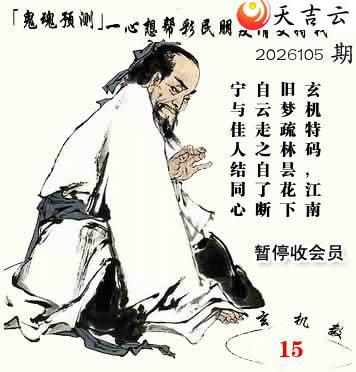 天吉云
「鬼魂预测」一心想帮彩民朋
2026105 期
玄机特码，江南
旧梦疏林昙花下
自云走之自了断
宁与佳人结同心
暂停收会员
玄机数
15